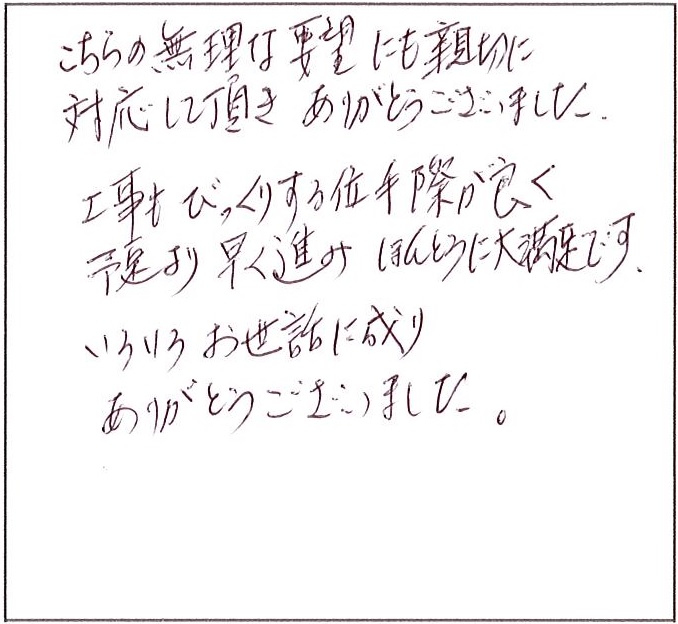 こちらの無理な要望にも親切に
対応して頂き ありがとうございました.
工事も びっくりする位手際が良く
予定より 早く進み ほんとうに大満足です.
いろいろ お世話に成り
ありがとうございました。